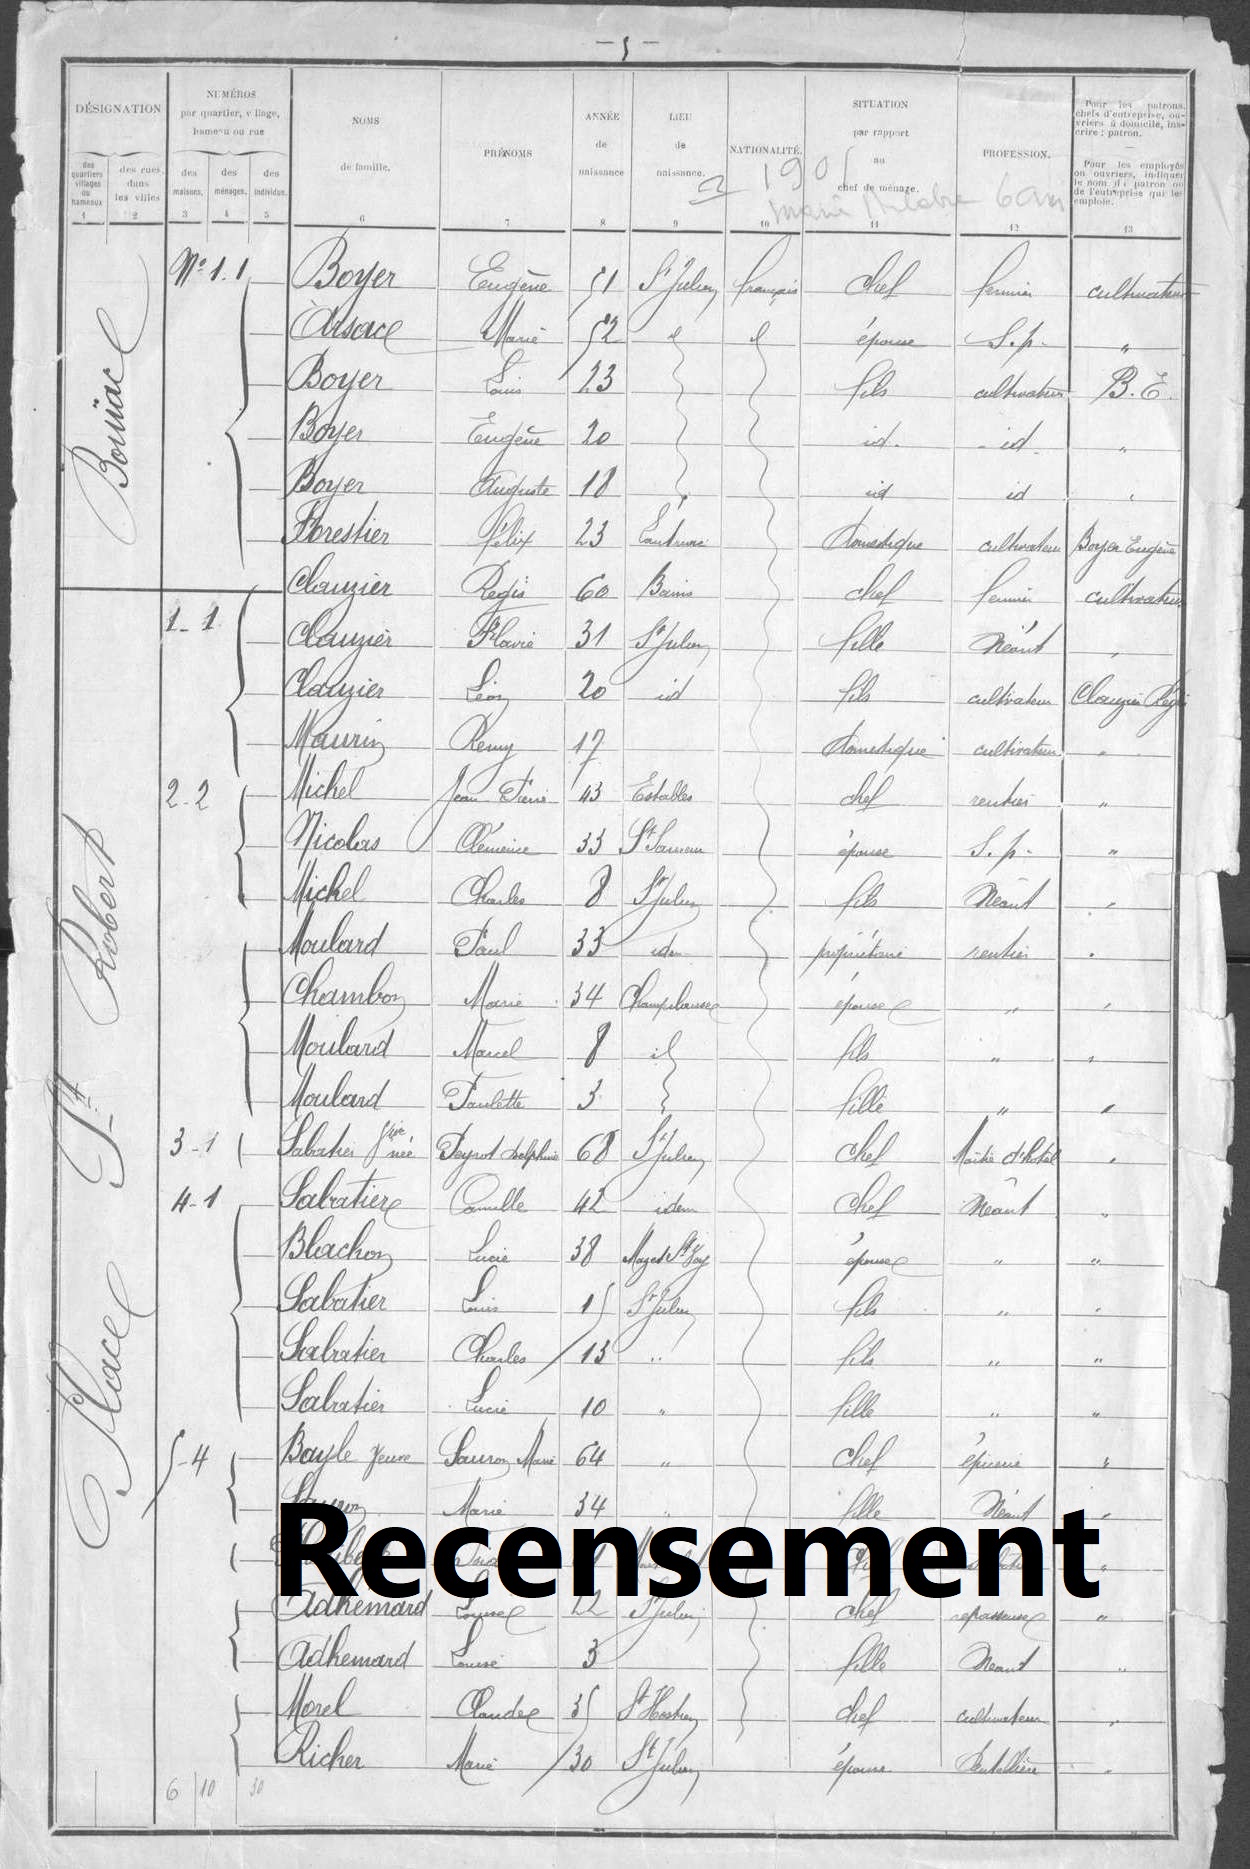 — 5 —
DÉSIGNATION
des quartiers villages ou hameaux
des rues dans les villes
NUMÉROS
par quartier, village, hameau ou rue
des maisons.
des ménages.
des individus.
NOMS
de famille.
PRÉNOMS
ANNÉE
de
naissance
LIEU
de
naissance.
NATIONALITÉ.
SITUATION
par rapport
au
chef de ménage.
PROFESSION.
Pour les patrons, chefs d'entreprise, ouvriers à domicile, inscrire : patron.
—
Pour les employés ou ouvriers, indiquer le nom du patron ou de l'entreprise qui les emploie.
1 2 3 4 5 6 7 8 9 10 11 12 13
190
6 ans
Bouiiac
Place St Robert
No 1. 1 Boyer Eugène 51 St Julien français chef fermier cultivateur
Arsac Marie 52 d d épouse S. p. "
Boyer Louis 23 fils cultivateur B. E.
Boyer Eugène 20 id. id. "
Boyer Auguste 18 id id "
Forestier Félix 23 domestique cultivateur Boyer Eugène
Clauzier Régis 60 Bains chef fermier cultivateur
1-1 Clauzier Flavie 31 St Julien fille Néant "
Clauzier Léon 20 id fils cultivateur Clauzier Régis
Maurin Remy 17 domestique cultivateur "
2-2 Michel Jean Pierre 43 Estables chef rentier "
Nicolas Clémence 33 épouse S. p. "
Michel Charles 8 St Julien fils Néant "
Moulard Paul 33 idem propriétaire rentier "
Chambon Marie 34 Champclause épouse " "
Moulard Marcel 8 id fils " "
Moulard Paulette 3 fille " "
3-1 Sabatier née Peyrot Delphine 68 St Julien chef Maître d'hôtel "
4-1 Sabatier Camille 42 idem chef Néant "
Blachon Lucie 38 Mazet St Voy épouse " "
Sabatier Louis 15 St Julien fils " "
Sabatier Charles 13 " fils " "
Sabatier Lucie 10 " fille " "
5-4 Bayle veuve Sauron Marie 64 " chef "
Marie 34 fille Néant "
Recensement
Adhemard Louise 22 St Julien chef repasseuse "
Adhemard Louise 3 fille Néant "
Morel Claude 35 St Hostien chef cultivateur "
Richer Marie 30 St Julien épouse Dentellière "
6 10 30